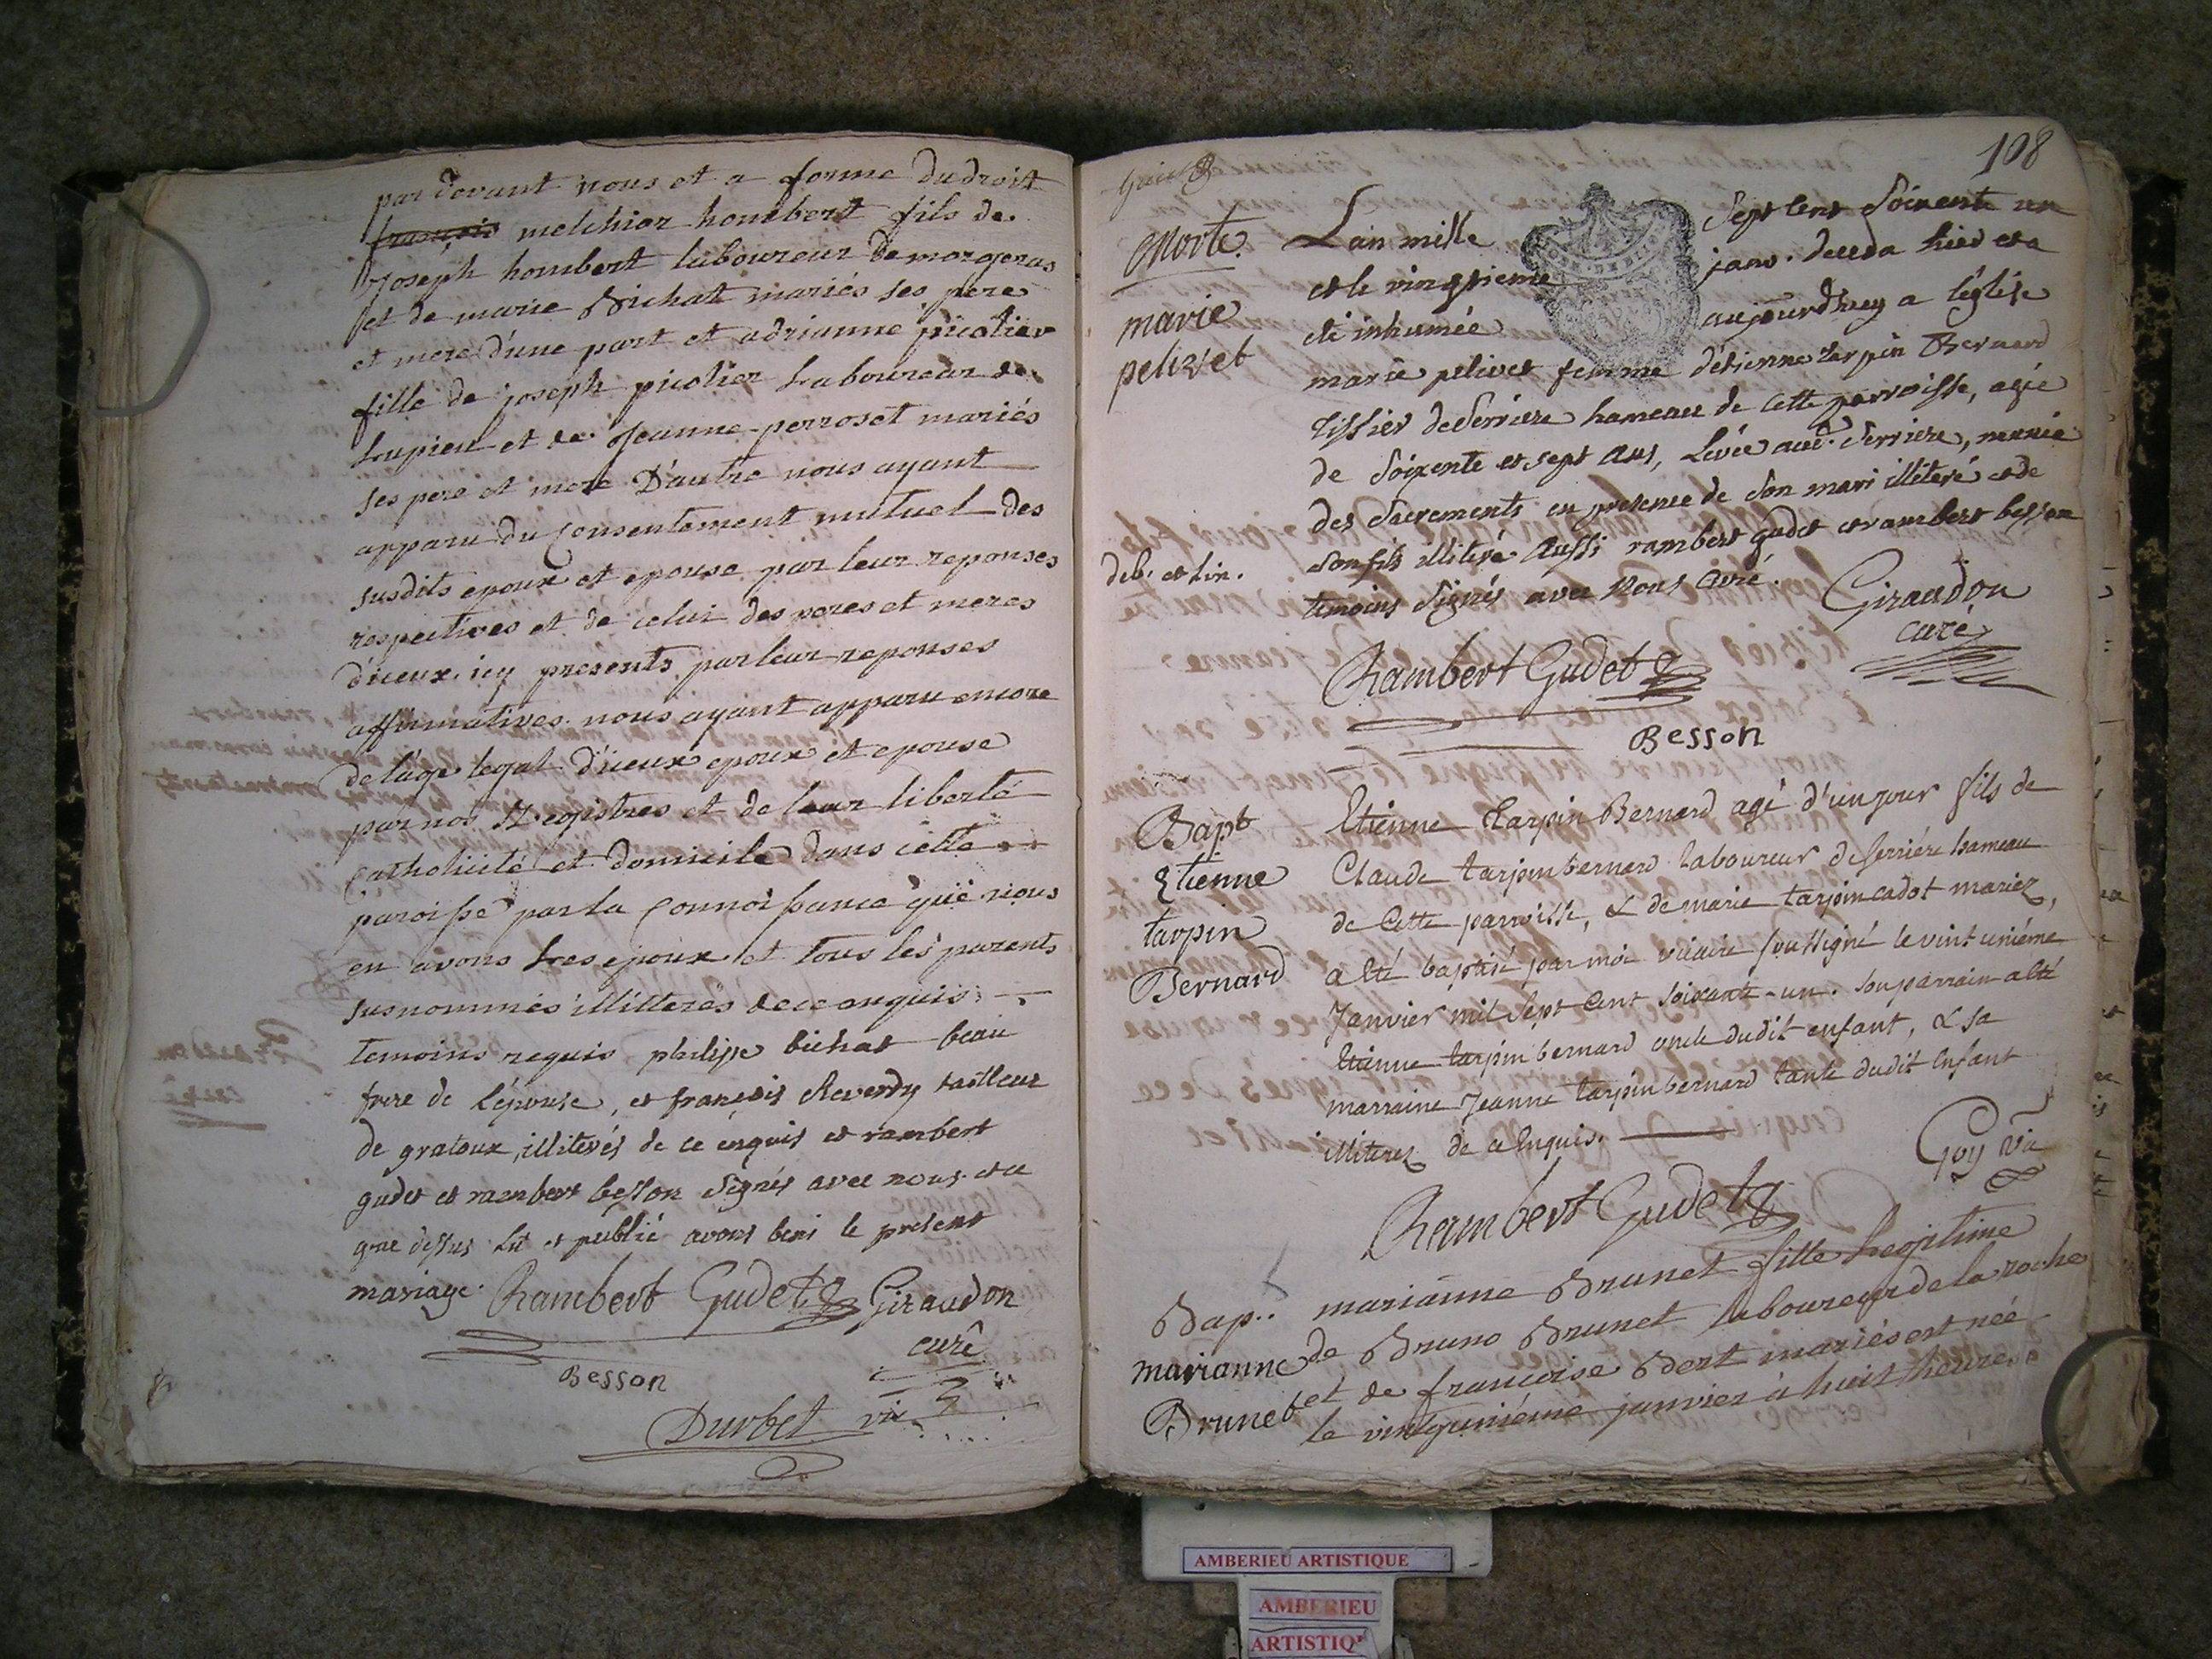 par devant nous et a forme du droit
françois melchior hombert fils de
Joseph hombert laboureur de morgenas
et de marie Bichat mariés ses pere
et mere d'une part et adrianne picolier
fille de joseph picolier Laboureur de
Lupieu et de Jeanne perroset mariés
ses pere et mere D'autre nous ayant
apparu du Consentement mutuel des
susdits epoux et epouse par leur reponses
respectives et de celui des peres et meres
d'iceux icy presents par leur reponses
affirmatives. nous ayant apparu encore
de l'age legal d'iceux epoux et epouse
par nos Registres et de leur liberté
Catholicité et domicile dans cette
paroisse par la Connoissance que nous
en avons Les epoux et tous les parents
susnommés illitterés de ce enquis
temoins requis philippe bichat beau
frere de l'épouse, et françois Reverdy tailleur
de gratoux, illiterés de ce enquis et rambert
gudet et rambert besson signés avec nous. et ce
que dessus Lu et publié avons beni le present
mariage. Rambert Gudet Giraudon
curé
Besson
Durbet vic
108
Morte.
marie
pelivet
deb. et lin.
L'an mille sept cent soixente un
et le vingtieme janv. deceda hier et a
été inhumée aujourdhuy a l'église
marie pelivet femme d'étienne tarpin Bernard
tissier de Serriere hameau de cette parroisse, agée
de soixente et sept ans, Levée aud. Serriere, munie
des sacrements en presence de son mari illiteré et de
son fils illiteré aussi rambert gudet et rambert besson
temoins signés avec Nous curé.
Giraudon
curé
Rambert Gudet
Besson
Bapt
Etienne
tarpin
Bernard
Etienne tarpin Bernard agé d'un jour fils de
Claude tarpin bernard laboureur de serriére hameau
de cette parroisse, & de marie tarpin cadot mariez,
a été baptisé par moi vicaire soussigné le vint uniéme
Janvier mil sept cent soixante-un. son parrain a été
Etienne tarpin bernard oncle dudit enfant, & sa
marraine Jeanne tarpin bernard tante dudit Enfant
illiterez de ce Enquis.
Goy vic
Rambert Gudet
Bap..
marianne
Brunet
marianne Brunet fille Legitime
de Bruno Brunet laboureur de la roche
et de francoise Bert mariés est née
le vingtuniéme janvier à huit heures
AMBERIEU ARTISTIQUE
AMBERIEU
ARTISTIQ